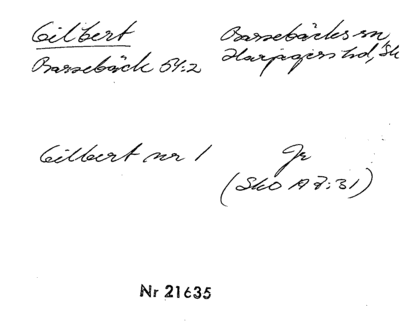 Gilbert
Barsebäcks sn,
Barsebäck 54:2
Harjagers hd, Sk
Gilbert nr 1
Jr
(Sko A 7:31)
Nr 21635